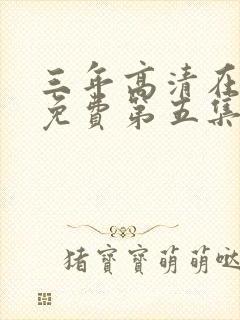 三年高清在
免费第五集
猪寶寶萌萌哒